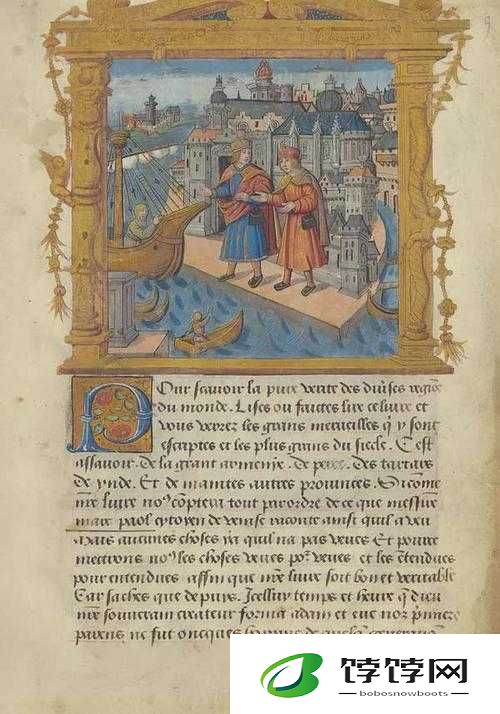 Our savoir la pure verite des diverses regiōs
du monde. Lises ou faictes lire ce livre et
vous verrez les grans merveilles q̄ y sont
escriptes et les plus grans du siecle. C'est
assavoir. de la grant armenie. de perse. des tartars
de ynde. Et de maintes autres provinces. Si come
n̄re livre no⁹ cōptera tout par ordre de ce que messire
marc paol cytoyen de venise raconte ainsi quil a veu
a vous aucunes choses ya quil na pas veues Et pource
mectrons no⁹ les choses veues po² veues et les entendues
pour entendues affin que n̄re livre soit bon et veritable
Car saches que depuys. Icelluy temps et heure q̄ dieu
n̄re souverain createur forma adam et eve noz p̄miers
parens ne fut oncques homme de
饽饽网
bobosnowboots